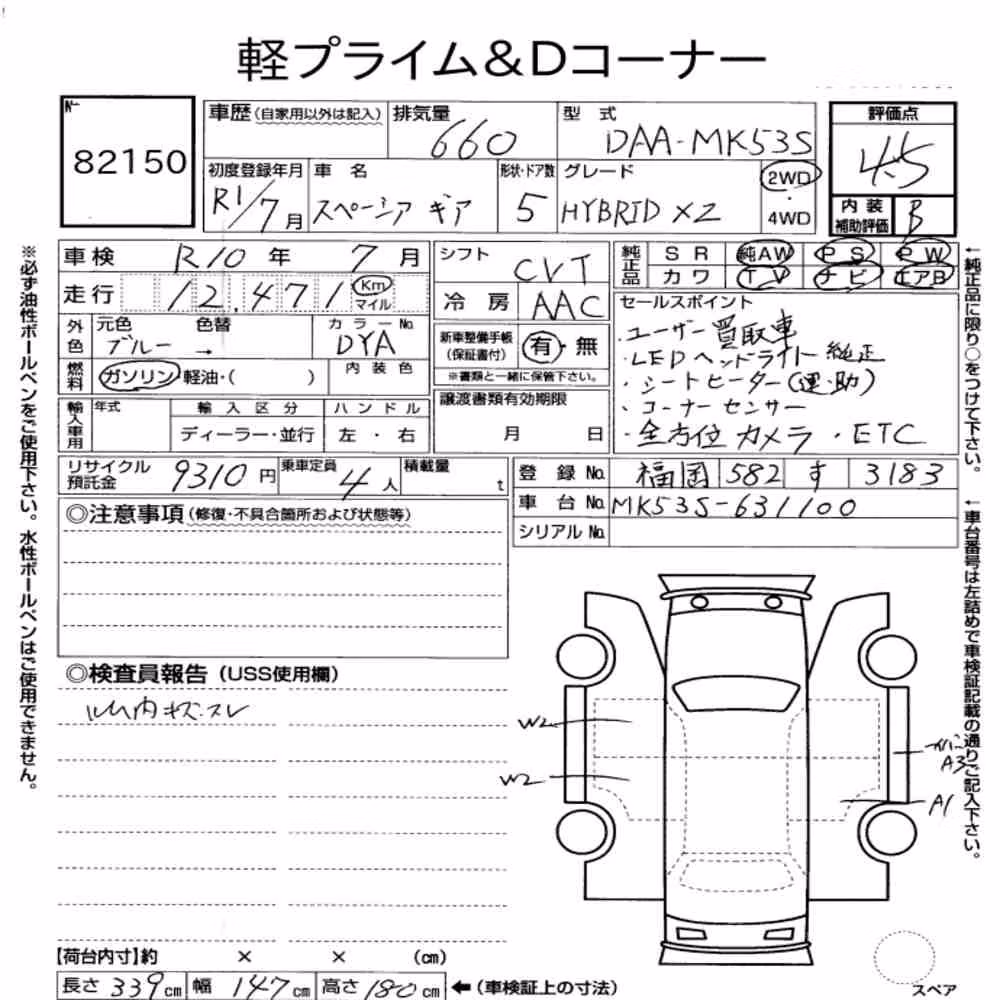 軽プライム&Dコーナー
No
82150
車歴(自家用以外は記入)
排気量
660
型 式
DAA-MK53S
評価点
4.5
初度登録年月
R1/7月
車 名
スペーシア ギア
形状・ドア数
5
グレード
HYBRID XZ
2WD
・
4WD
内装
補助評価
B
車検 R10年 7月
走行 12,471 Km マイル
外色
元色
ブルー
色替
→
カラーNo.
DYA
燃料
ガソリン・軽油・( )
内装色
輸入車用
年式
輸入区分
ディーラー・並行
ハンドル
左・右
シフト
CVT
冷房
AAC
新車整備手帳
(保証書付)
有・無
※書類と一緒に保管下さい。
譲渡書類有効期限
月 日
純正品
SR 純AW PS PW
カワ TV ナビ エアB
セールスポイント
・ユーザー買取車
・LEDヘッドライト純正
・シートヒーター(運・助)
・コーナーセンサー
・全方位カメラ ・ETC
リサイクル
預託金
9310円
乗車定員
4人
積載量
t
登録No. 福岡 582 す 3183
車台No. MK53S-631100
シリアルNo.
◎注意事項(修復・不具合箇所および状態等)
◎検査員報告(USS使用欄)
内キズ・スレ
W2
W2
A3
A1
スペア
【荷台内寸】約 × × (cm)
長さ 339cm 幅 147cm 高さ 180cm ←(車検証上の寸法)
※必ず油性ボールペンをご使用下さい。水性ボールペンはご使用できません。
←純正品に限り○をつけて下さい。
←車台番号は左詰めで車検証記載の通りご記入下さい。